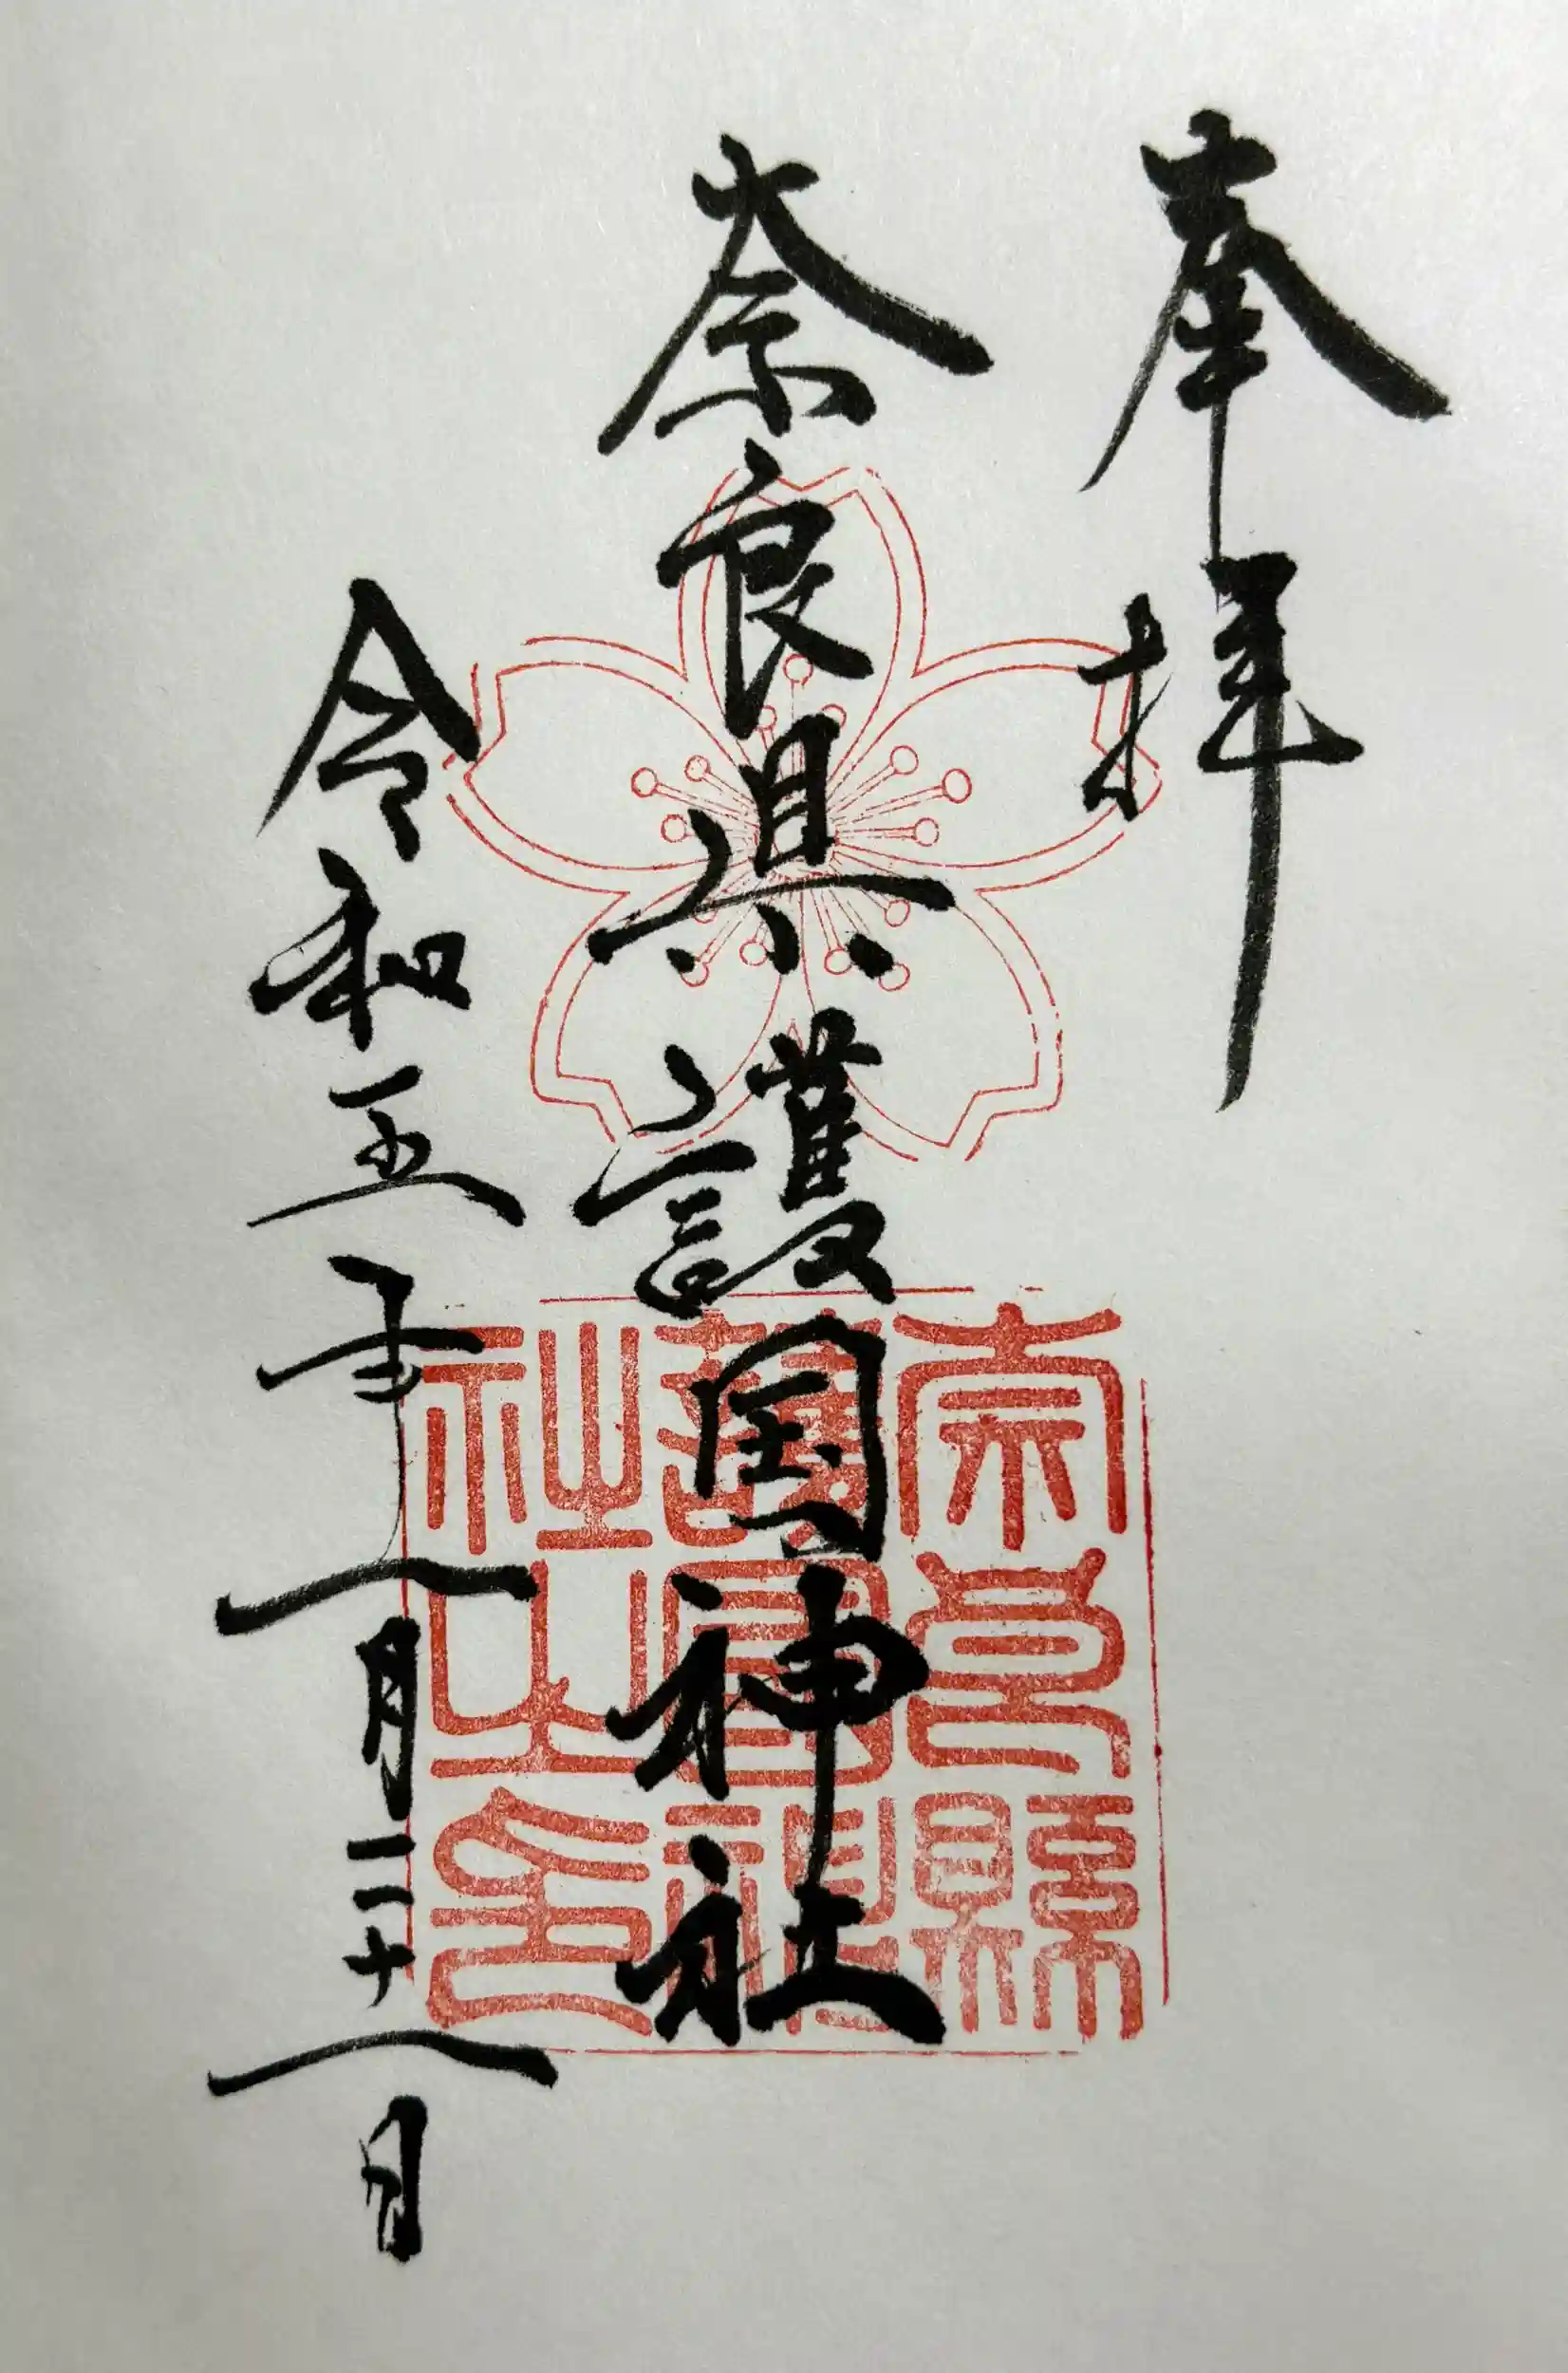 奉拝
奈良県護国神社
令和五年一月二十一日
奈良縣
護國神
社之印